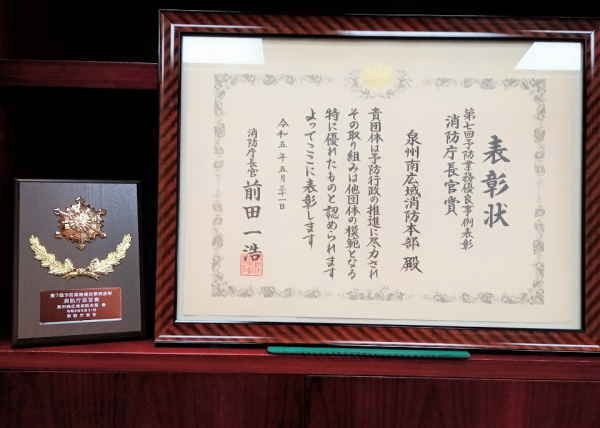 表彰状
第七回予防業務優良事例表彰
消防庁長官賞
泉州南広域消防本部 殿
貴団体は予防行政の推進に尽力され
その取り組みは他団体の模範となる
特に優れたものと認められます
よってここに表彰します
令和五年五月三十一日
消防庁長官 前田一浩
第7回予防業務優良事例表彰
消防庁長官賞